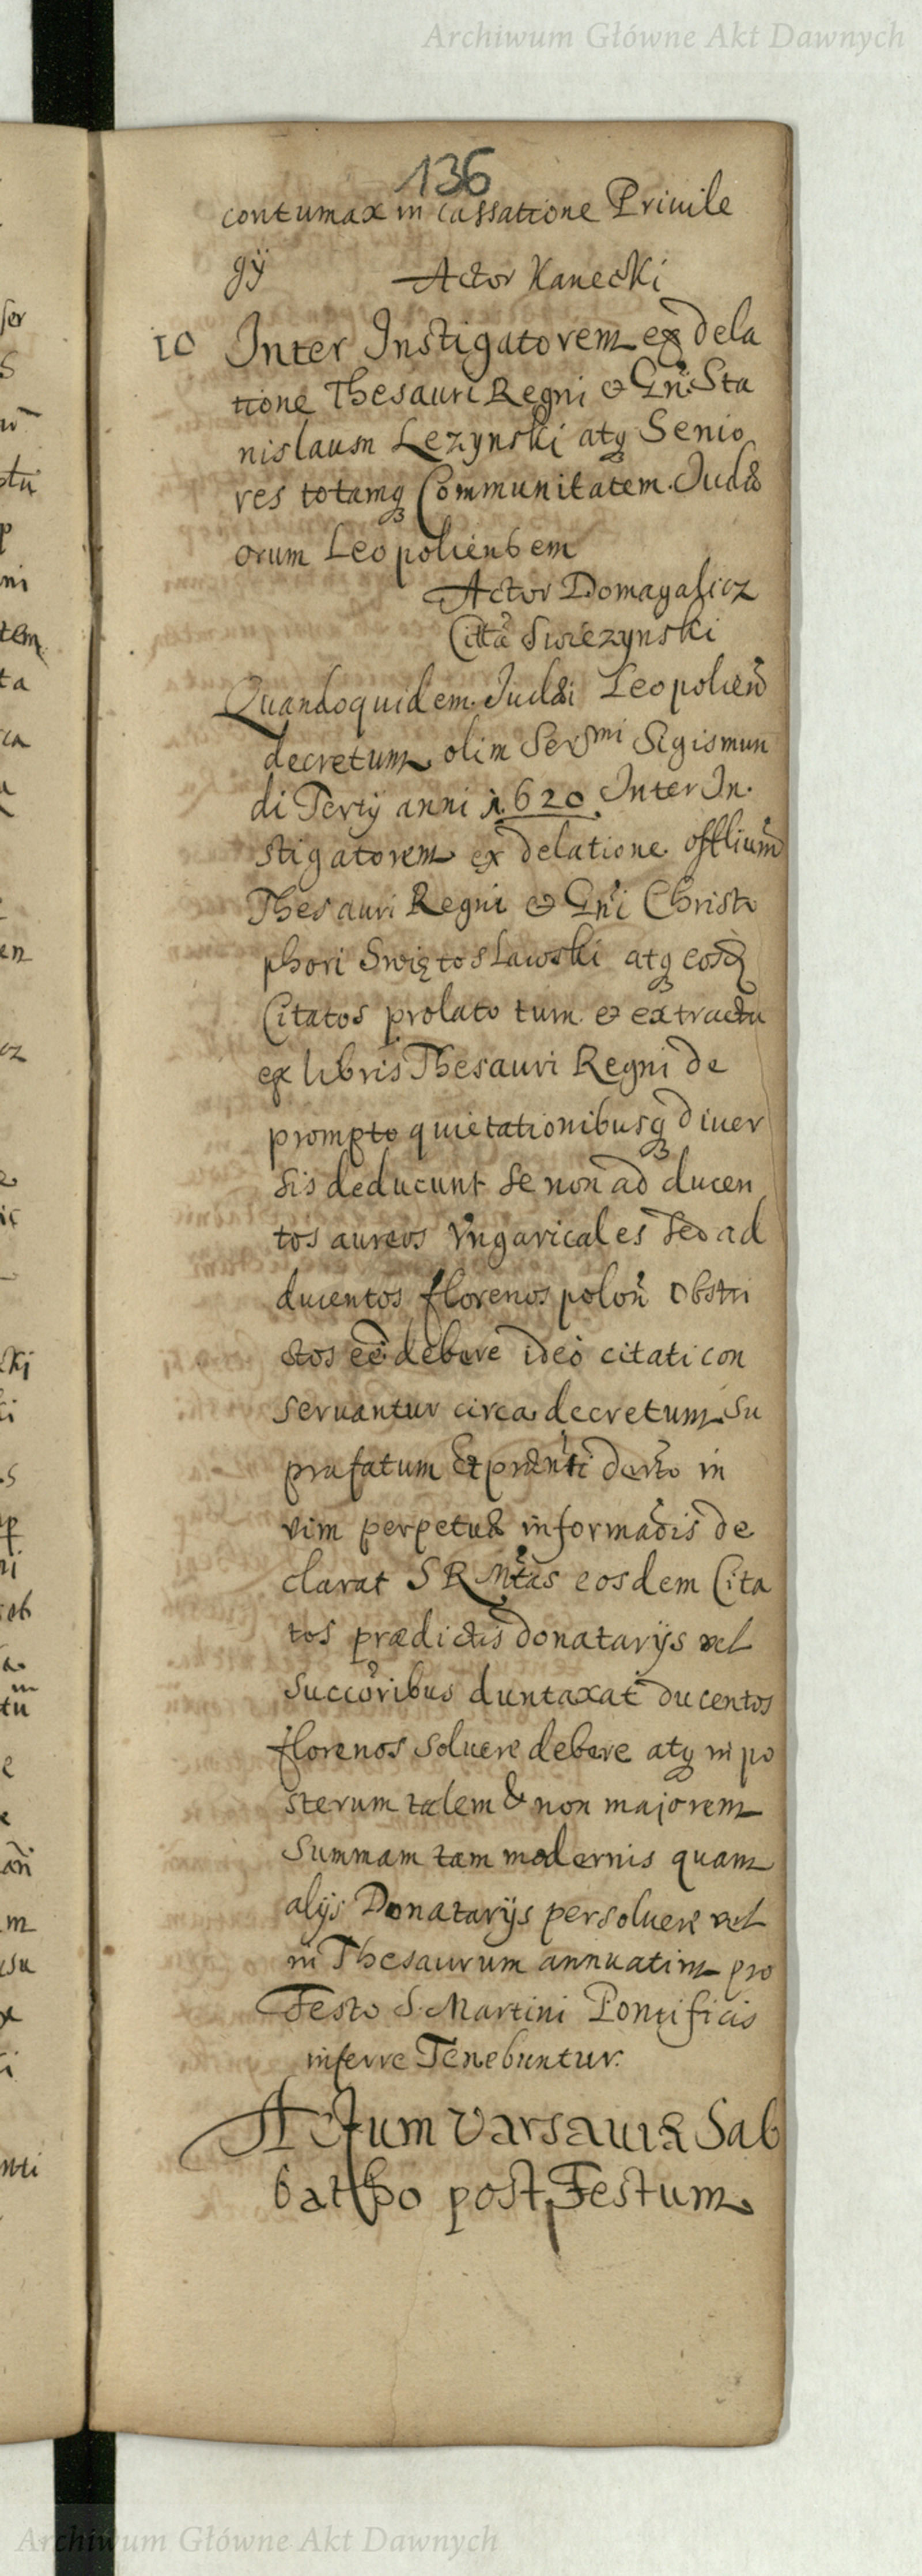 Archiwum Główne Akt Dawnych
136
contumax in cassatione Priuile
gÿ Actor Kanecki
10 Inter Instigatorem ex dela
tione Thesauri Regni & Gnī Sta
nislaum Lezynski atq Senio
res totamq Communitatem Judæ
orum Leopoliensem
Actor Domagalicz
Citta Swiezynski
Quandoquidem Judæi Leopolien̄
decretum olim Sermi Sigismun
di Tertÿ anni 1620. Inter In
stigatorem ex delatione offlium
Thesauri Regni & Gnī Christo
phori Swiętoslawski atq eosd
Citatos prolato tum & extractu
ex libris Thesauri Regni de
prompto quietationibusq diuer
sis deducunt se non ad ducen
tos aureos Vngaricales sed ad
ducentos florenos polon̄ obstri
ctos eē debere ideo citati con
seruantur circa decretum su
prafatum Et præntī decto in
vim perpetuæ informaōis de
clarat S R Mtas eosdem Cita
tos prædictis donatarÿs vel
succōribus duntaxat ducentos
florenos soluere debere atq in po
sterum talem & non majorem
summam tam modernis quam
alÿs Donatarÿs persoluere vel
in Thesaurum annuatim pro
Festo S. Martini Pontificis
inferre Tenebuntur.
Actum Varsauiæ Sab
batho post Festum
Archiwum Główne Akt Dawnych